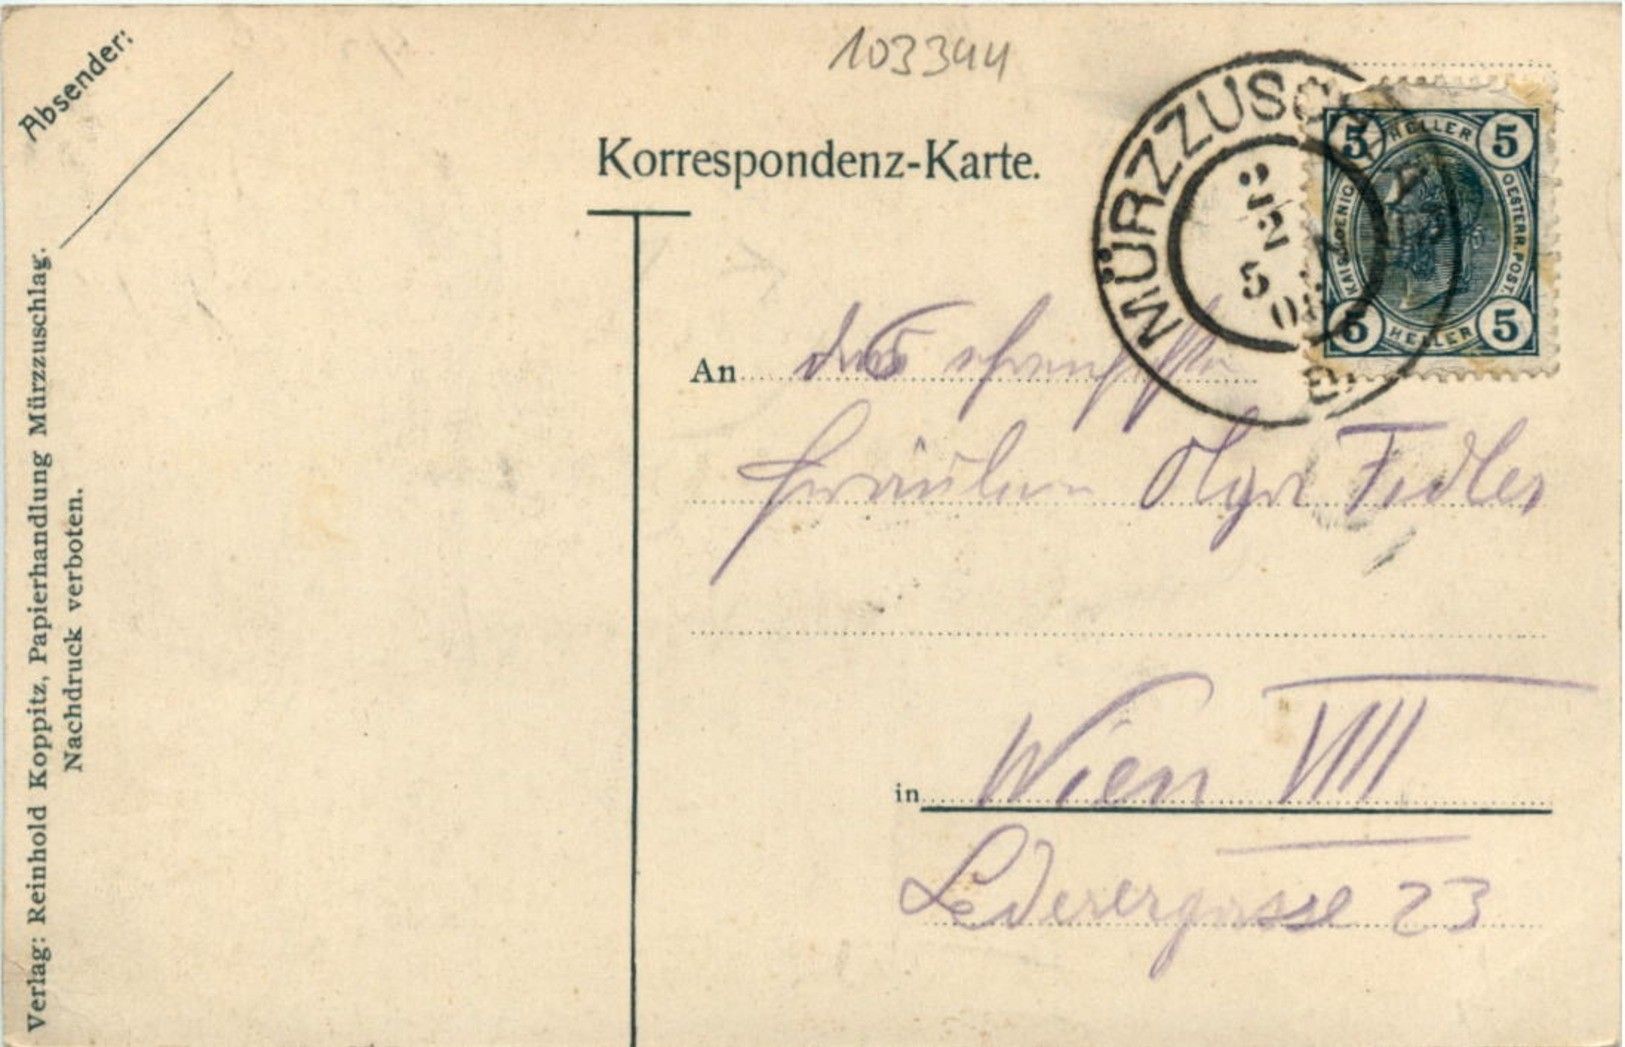 Absender:
103344
Korrespondenz-Karte.
MÜRZZUSCHLAG
2/2
5
08
5 HELLER 5
KAIS. KOENIG. OESTERR. POST.
5 HELLER 5
An
Fräulein Olga Fidler
in Wien VIII
Lederergasse 23
Verlag: Reinhold Koppitz, Papierhandlung Mürzzuschlag.
Nachdruck verboten.